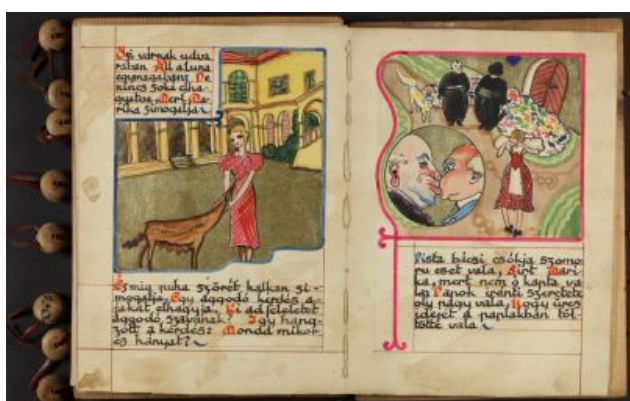 Ősi várnak udva
rában Áll a tuna
egymagában. De
nincs soká elha-
gyatva, Mert Ma-
rika simogatja
És mig puha szörét halkan si-
mogatja, Egy aggodó kérdés a-
jakát elhagyja. Ki ad feleletet
aggodó szavának? Igy hang-
zott a kérdés: Mondd mikor
és hányat?
Pista bácsi csókja szomo
ru eset vala, Sirt Mari
ka, mert nem ő kapta va
la Papok iránti szeretete
oly nagy vala, Hogy üres
idejét a paplakban töl-
tötte vala